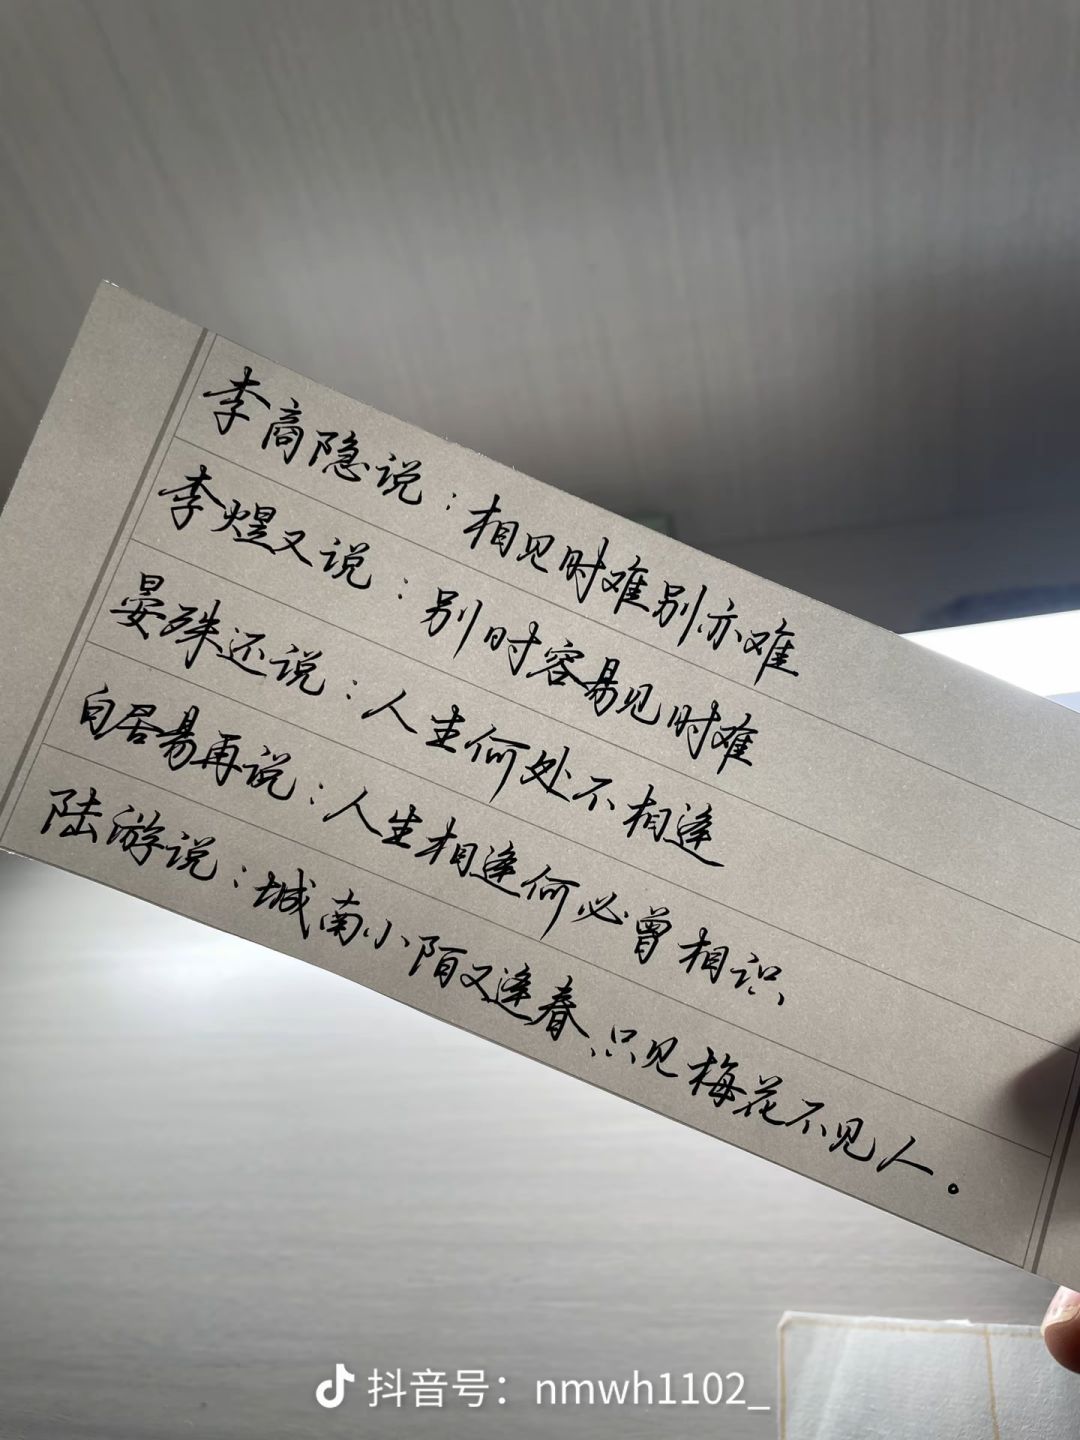 李商隐说：相见时难别亦难
李煜又说：别时容易见时难
晏殊还说：人生何处不相逢
白居易再说：人生相逢何必曾相识
陆游说：城南小陌又逢春、只见梅花不见人。
抖音号：nmwh1102_